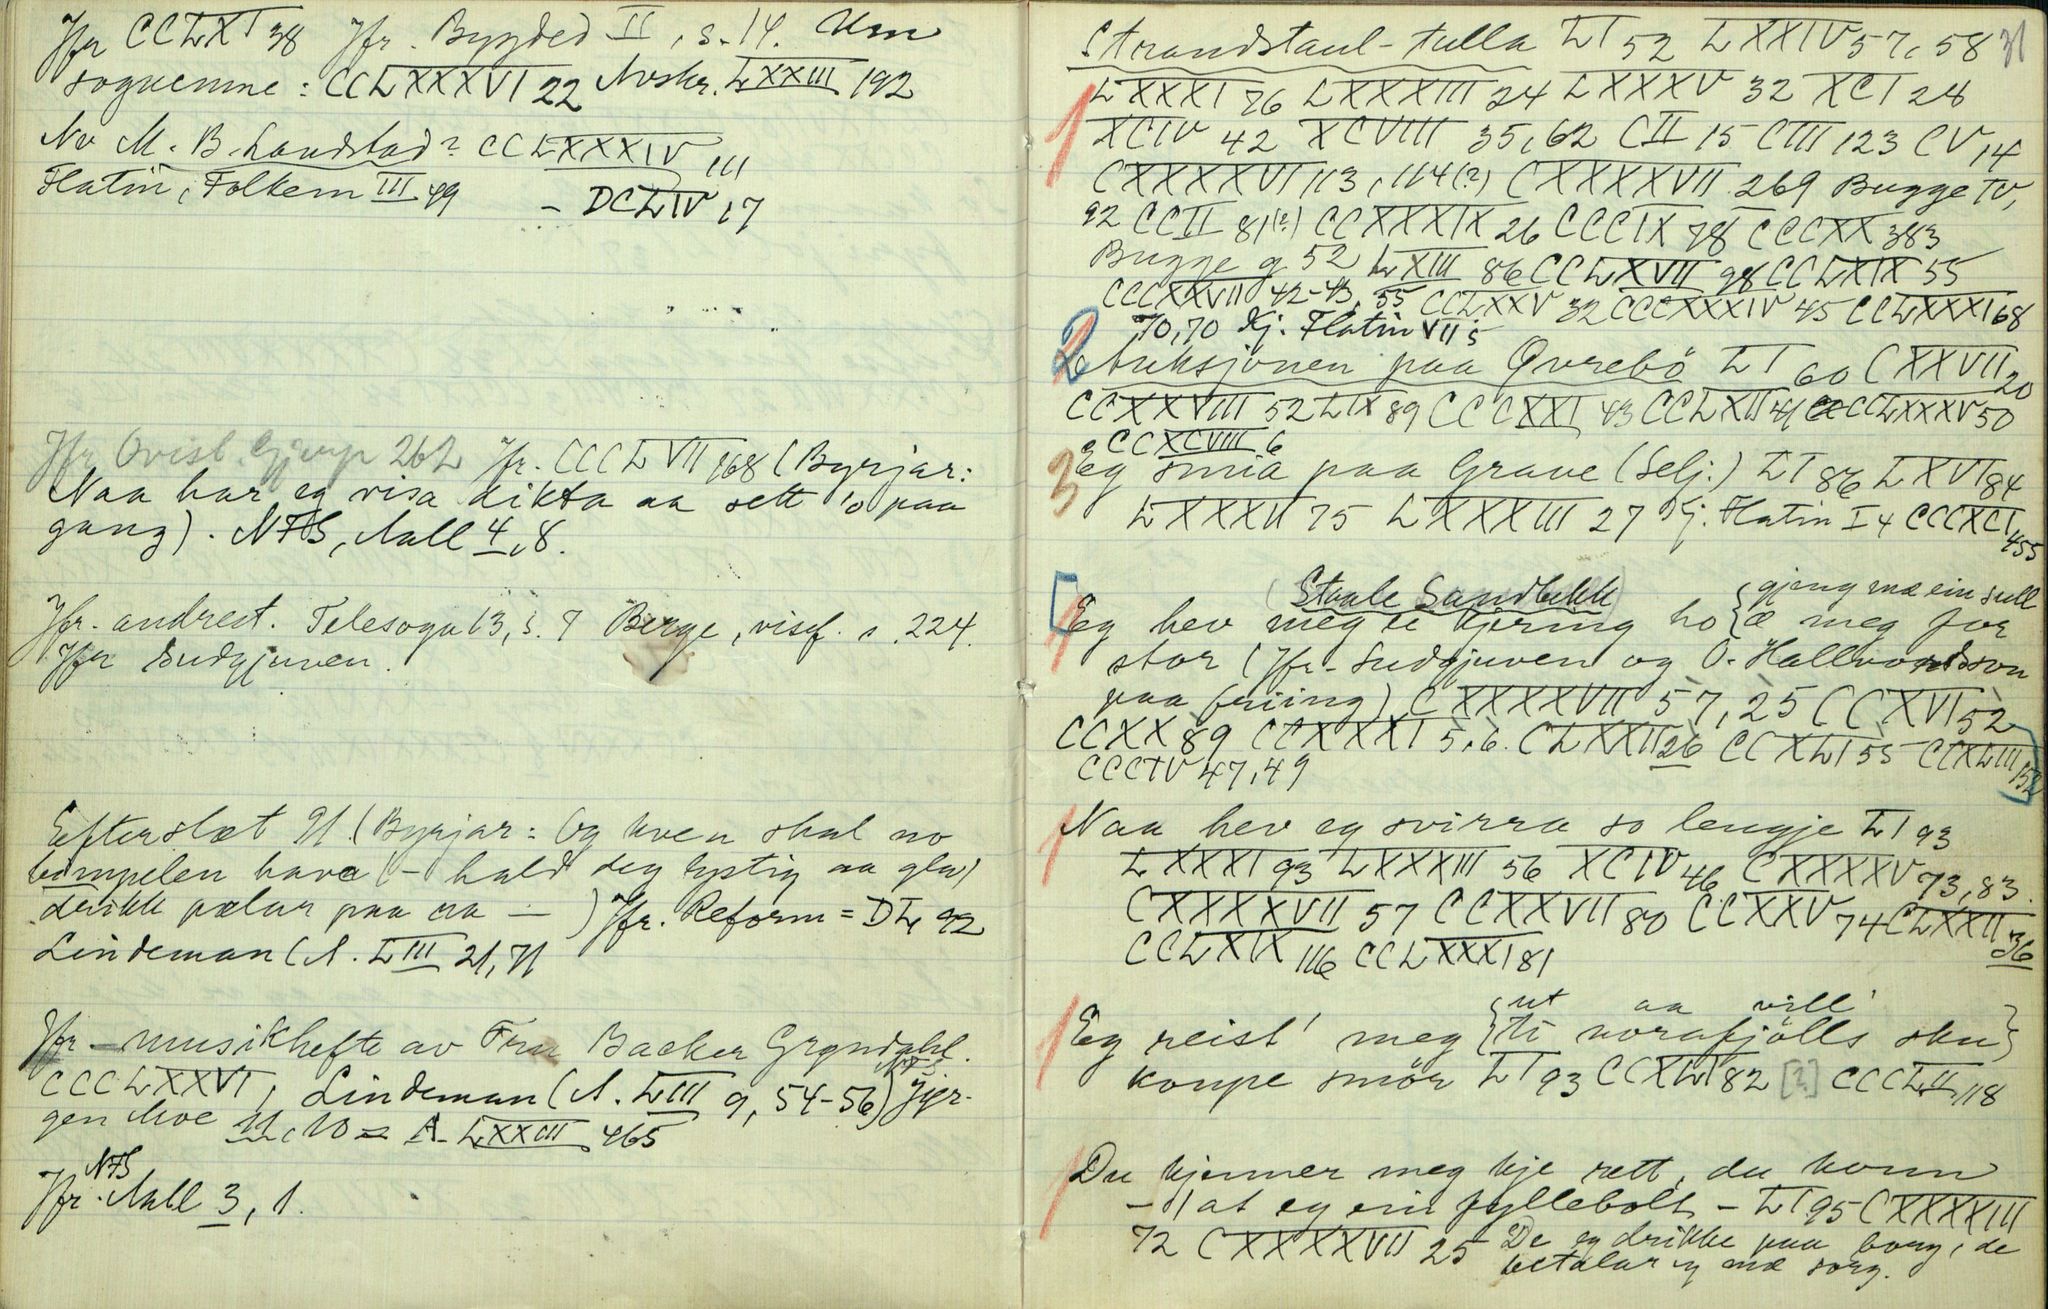 Jfr CCLXI 38 Jfr. Bygded II, s. 14. Um
soguemne: CCLXXXVI 22 Avskr. LXXIII 192
Av M. B. Landstad? CCLXXXIV 111
Flatin, Folkem III 49 – DCLIV 17
Jfr Qvisl. 262 Jfr. CCCLVII 168 (Byrjar:
Naa har eg visa dikta aa sett 'o paa
gang). NFS, Aall 4, 8.
Jfr. andrest. Telesoga 13, s. 7 Berge, visef. s. 224.
Jfr Sudgjuven.
Efterslæt 91. (Byrjar: Og kven skal no
pumpelen hava (– hald deg lystig aa gla)
drikk pælar paa aa —) Jfr. Reform = DL 92
Lindeman (A. LIII 21, 71
Jfr – musikhefte av Fru Backer Grøndahl.
CCCLXXVI, Lindeman (A. LIII 9, 54–56) Jør-
gen Moe 11, 10 = A LXXIII 465
NFS
Jfr. Aall 3, 1.
31
Strandstaul-tulla LI 52 LXXIV 57, 58
1 LXXXI 76 LXXXIII 24 LXXXV 32 XCI 28
XCIV 42 XCVIII 35, 62 CII 15 CIII 123 CV 14
CXXXXVI 113, 114(?) CXXXXVII 269 Bugge IV,
92 CCII 81(?) CCXXXIX 26 CCCIX 78 CCCXX 383
Bugge g 52 LXIII 86 CCLXVII 98 CCLXIX 55
CCCXXVII 42–43, 55 CCLXXV 32 CCCXXXIV 45 CCLXXXI 68
70, 70 Kj. Flatin VII 5
2 Auksjonen paa Øvrebö LI 60 CXXVII 20
CCXXVIII 52 LIX 89 CCCXXI 43 CCLXII 41 CCLXXXV 50
CCXCVIII 6
3 Eg smia paa Grave (Selj.) LI 86 LXVI 84
LXXXII 75 LXXXIII 27 Kj. Flatin I 4 CCCXCI 455
(Staale Sandbekk) gjeng mæ ein sull
1 Eg hev meg ei kjering ho {æ meg for
stor (Jfr. Sudgjuven og O. Hallvordsson
paa friing) CXXXXVII 57, 25 CCXVI 52
CCXX 89 CCXXXI 5, 6. CLXXII 26 CCXLI 55 CCXLIII 152
CCCIV 47, 49
1 Naa hev eg svirra so lengje LI 93
LXXXI 93 LXXXIII 56 XCIV 46 CXXXXV 73, 83.
CXXXXVII 57 CCXXVII 80 CCXXV 74 CLXXII 36
CCLXIX 116 CCLXXXI 81
ut aa vill'
1 Eg reist' meg {ti norafjölls sku}
koupe smör LI 93 CCXLI 82 [?] CCCLII 118
1 Du kjenner meg kje rett, du konn
– at eg ein fyllebolt – LI 95 CXXXXIII
72 CXXXXVII 25 De eg drikke paa borg, de
betalar eg mæ sorg.